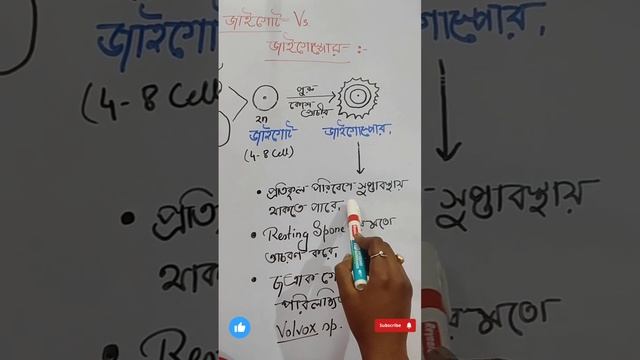 জাইগোট Vs
জাইগোস্পোর :-
2n
জাইগোট
(4-8 Cell)
পুরু
কোশ প্রাচীর
জাইগোস্পোর,
• প্রতিকূল পরিবেশে সুপ্তাবস্থায়
থাকতে পারে,
• Resting Spore মতো
আচরণ করে,
•
পরিলক্ষি
Volvox sp.
Subscribe